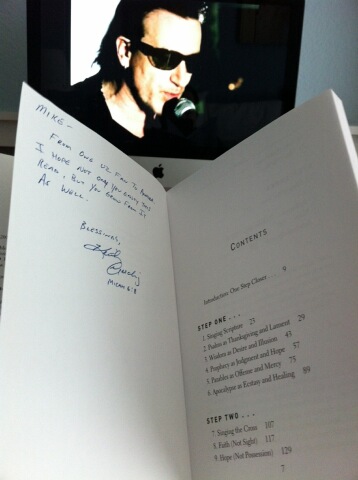 MIKE-
FROM ONE U2 FAN TO ANOTHER
I HOPE NOT ONLY YOU ENJOY THIS
READ, BUT YOU GROW FROM IT
AS WELL.
BLESSINGS,
MICAH 6:8
CONTENTS
Introduction: One Step Closer 9
STEP ONE . . .
1. Singing Scripture 25
2. Psalms as Thanksgiving and Lament 29
3. Wisdom as Desire and Illusion 43
4. Prophecy as Judgment and Hope 57
5. Parables as Offense and Mercy 75
6. Apocalypse as Ecstasy and Healing 89
STEP TWO . . .
7. Singing the Cross 107
8. Faith (Not Sight) 117
9. Hope (Not Possession) 129
7